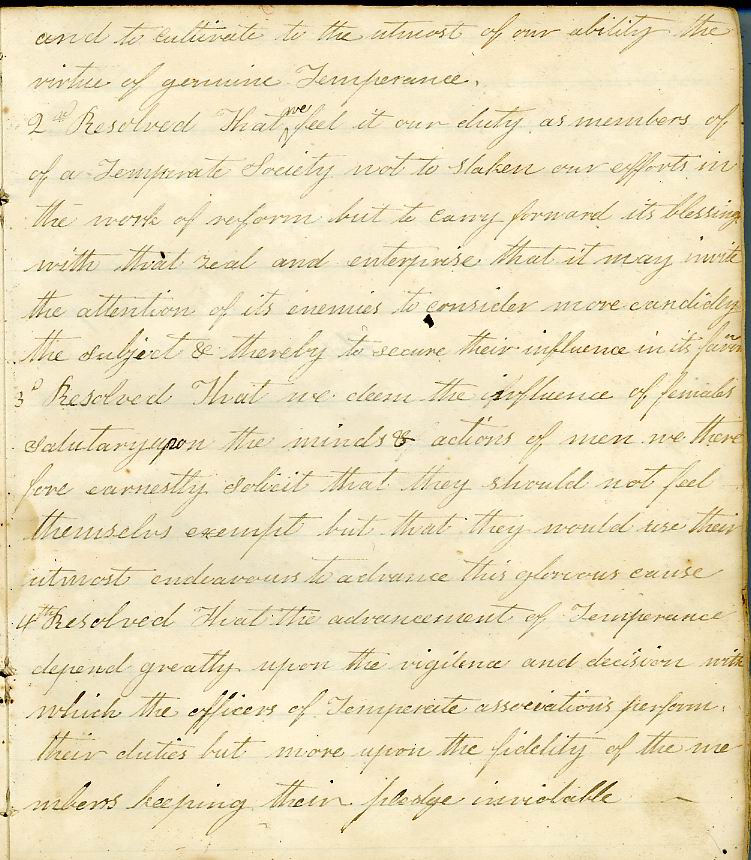 and to cultivate to the utmost of our ability the
virtue of genuine Temperance.
2d Resolved That we feel it our duty as members of
of a Temperate Society not to slaken our efforts in
the work of reform but to carry forward its blessing
with that zeal and enterprise that it may invite
the attention of its enemies to consider more candidly
the subject & thereby to secure their influence in its favor
3d Resolved That we deem the influence of females
salutary upon the minds & actions of men we there
fore earnestly solicit that they should not feel
themselvs exempt but that they would use their
utmost endeavours to advance this glorious cause
4th Resolved That the advancement of Temperance
depend greatly upon the vigilence and decision with
which the officers of Temperate associations perform.
their duties but more upon the fidelity of the me
mbers keeping their pledge inviolable —